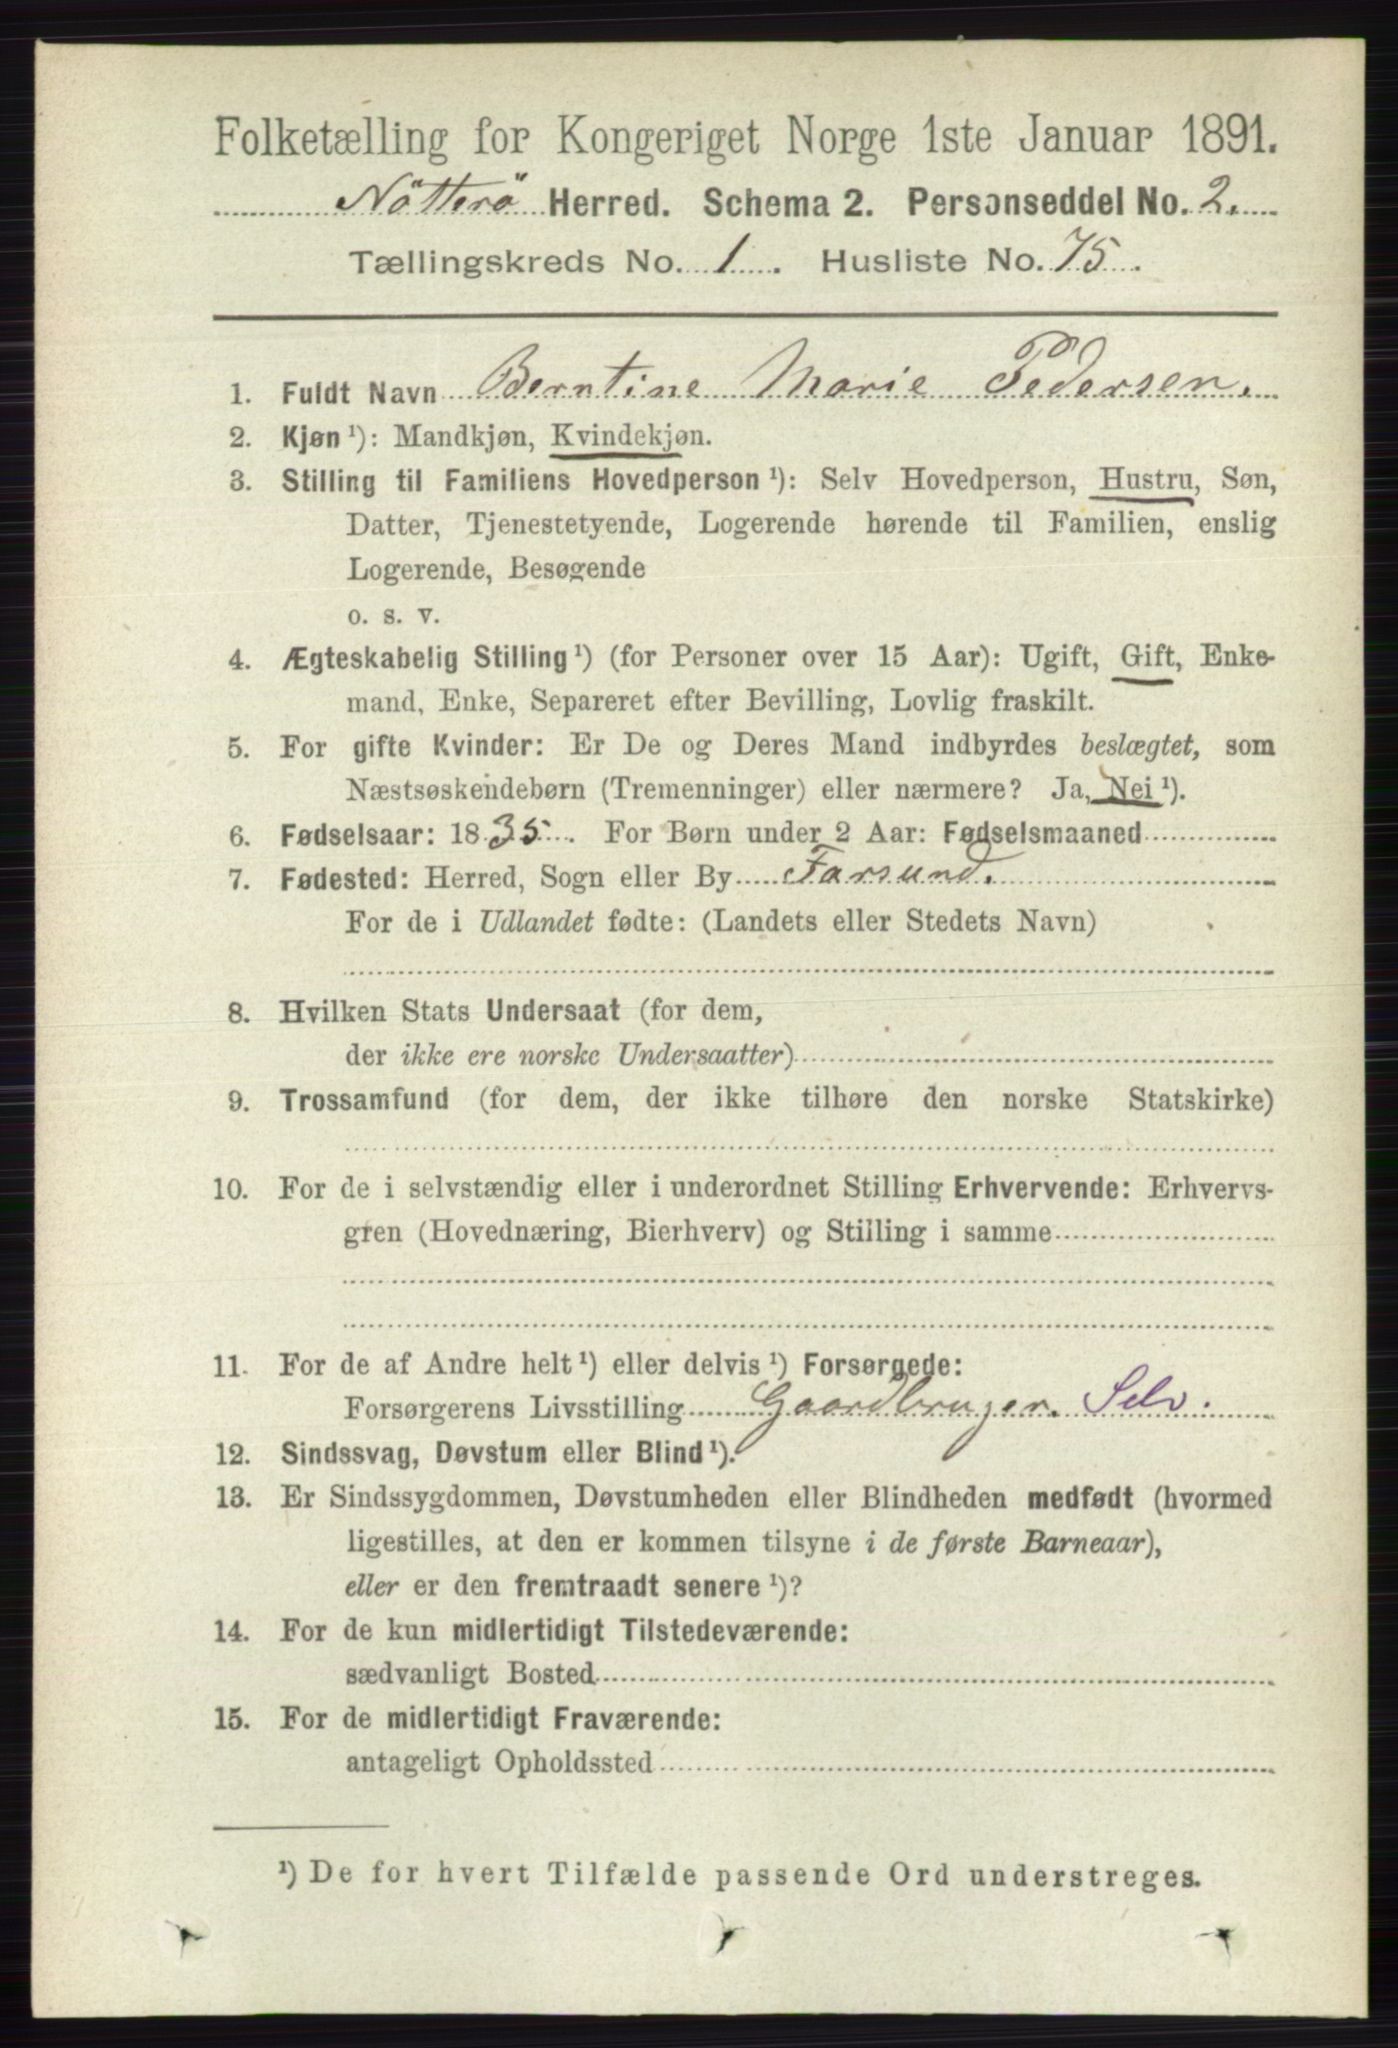 Folketælling for Kongeriget Norge 1ste Januar 1891.
Nötterö Herred. Schema 2. Personseddel No. 2.
Tællingskreds No. 1. Husliste No. 75.
1. Fuldt Navn Berntine Marie Pedersen.
2. Kjøn ¹): Mandkjøn, Kvindekjøn.
3. Stilling til Familiens Hovedperson ¹): Selv Hovedperson, Hustru, Søn,
Datter, Tjenestetyende, Logerende hørende til Familien, enslig
Logerende, Besøgende
o. s. v.
4. Ægteskabelig Stilling ¹) (for Personer over 15 Aar): Ugift, Gift, Enke-
mand, Enke, Separeret efter Bevilling, Lovlig fraskilt.
5. For gifte Kvinder: Er De og Deres Mand indbyrdes beslægtet, som
Næstsøskendebørn (Tremenninger) eller nærmere? Ja, Nei ¹).
6. Fødselsaar: 1835. For Børn under 2 Aar: Fødselsmaaned
7. Fødested: Herred, Sogn eller By Farsund.
For de i Udlandet fødte: (Landets eller Stedets Navn)
8. Hvilken Stats Undersaat (for dem,
der ikke ere norske Undersaatter)
9. Trossamfund (for dem, der ikke tilhøre den norske Statskirke)
10. For de i selvstændig eller i underordnet Stilling Erhvervende: Erhvervs-
gren (Hovednæring, Bierhverv) og Stilling i samme
11. For de af Andre helt ¹) eller delvis ¹) Forsørgede:
Forsørgerens Livsstilling Gaardbruger. Selv.
12. Sindssvag, Døvstum eller Blind ¹).
13. Er Sindssygdommen, Døvstumheden eller Blindheden medfødt (hvormed
ligestilles, at den er kommen tilsyne i de første Barneaar),
eller er den fremtraadt senere ¹)?
14. For de kun midlertidigt Tilstedeværende:
sædvanligt Bosted
15. For de midlertidigt Fraværende:
antageligt Opholdssted
¹) De for hvert Tilfælde passende Ord understreges.